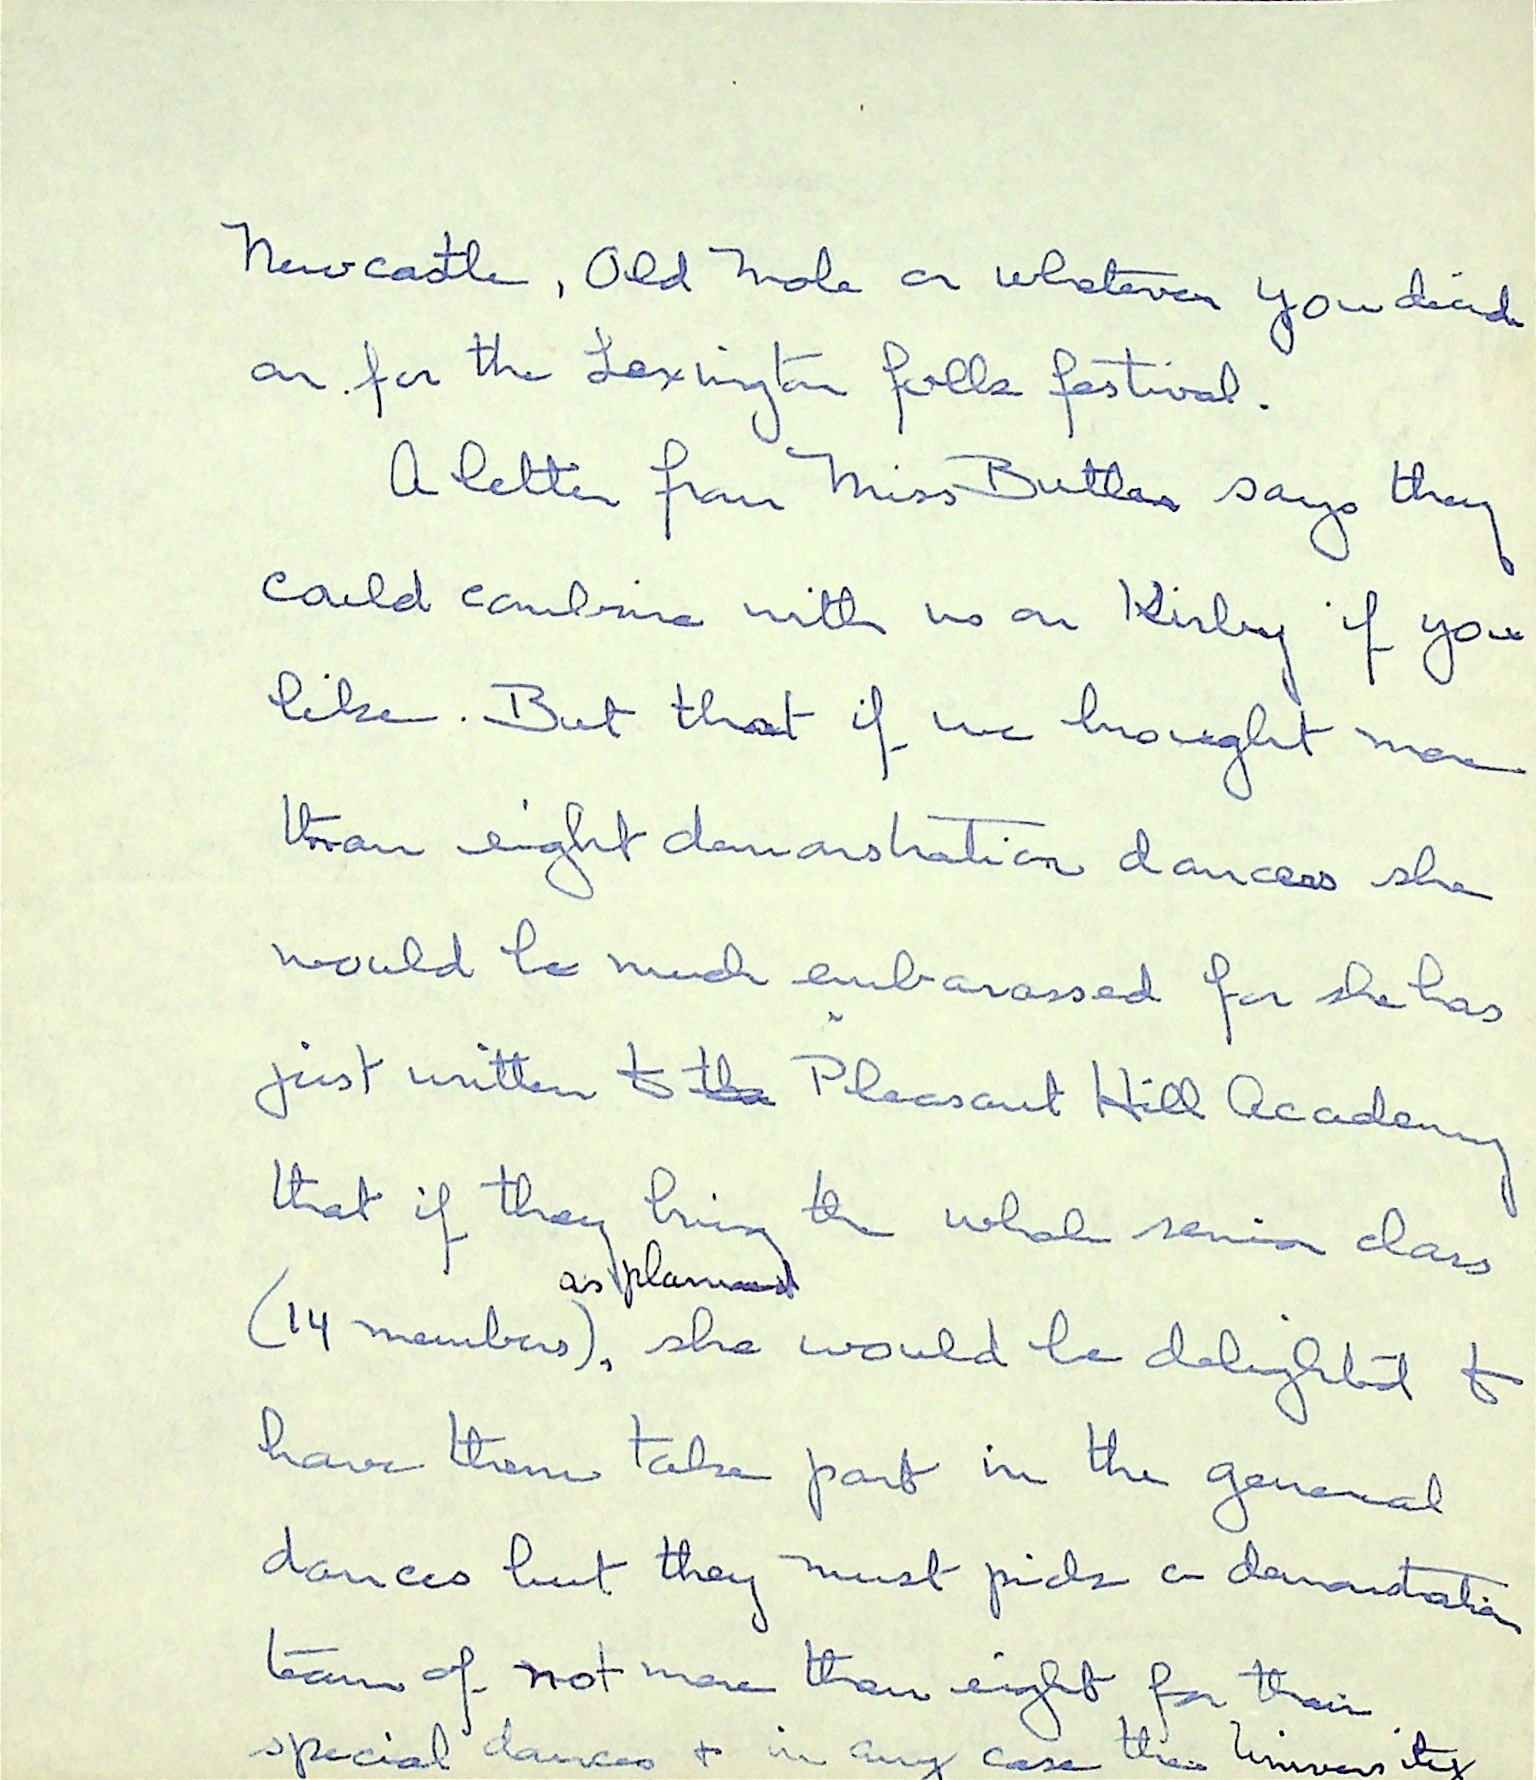 Newcastle, Old Mole or whatever you decide
on for the Lexington folk festival.
A letter from Miss Butler says they
could combine with us on Kirby if you
like. But that if we brought more
than eight demonstration dancers she
would be much embarassed for she has
just written to the Pleasant Hill Academy
that if they bring the whole senior class
as planned
(14 members), she would be delighted to
have them take part in the general
dances but they must pick a demonstration
team of not more than eight for their
special dances + in any case the University